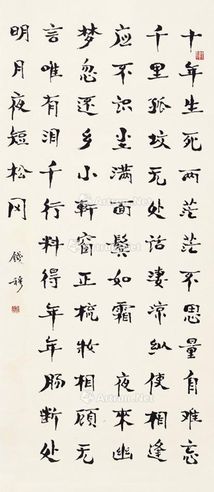 十年生死两茫茫不思量自难忘
千里孤坟无处话凄凉纵使相逢
应不识尘满面鬓如霜 夜来幽
梦忽还乡小轩窗正梳妆相顾无
言唯有泪千行料得年年肠断处
明月夜短松冈
錢穆